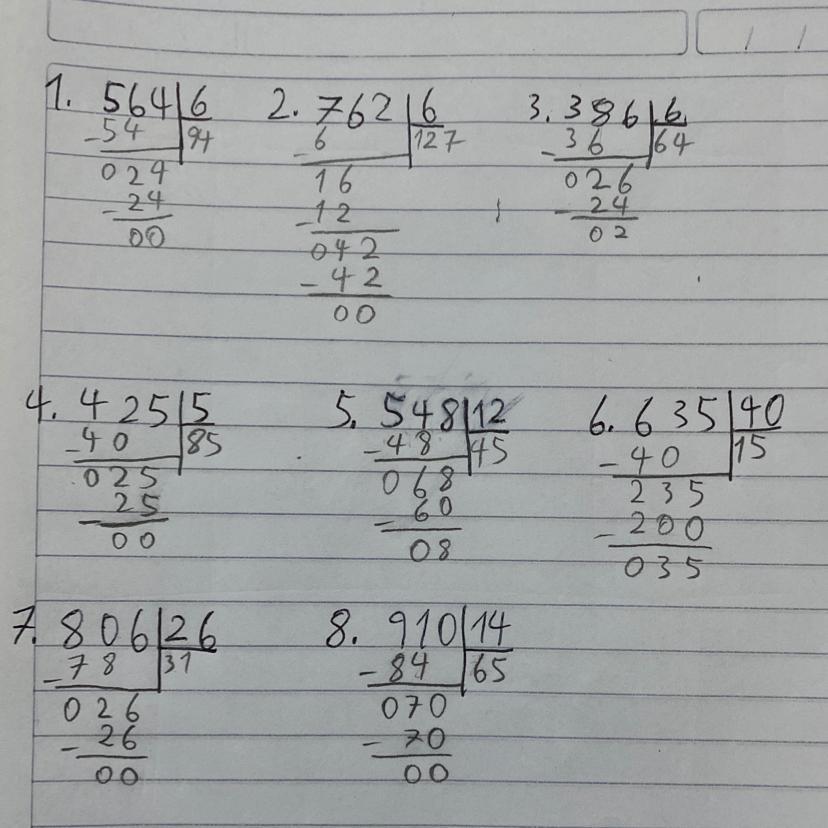 1. 564 6 2. 762 6 3. 386 6
-54 94 -6 127 -36 64
024 16 026
-24 -12 -24
00 042 02
-42
00
4. 425 5 5. 548 12 6. 635 40
-40 85 -48 45 -40 15
025 068 235
-25 -60 -200
00 08 035
7. 806 26 8. 910 14
-78 31 -84 65
026 070
-26 -70
00 00